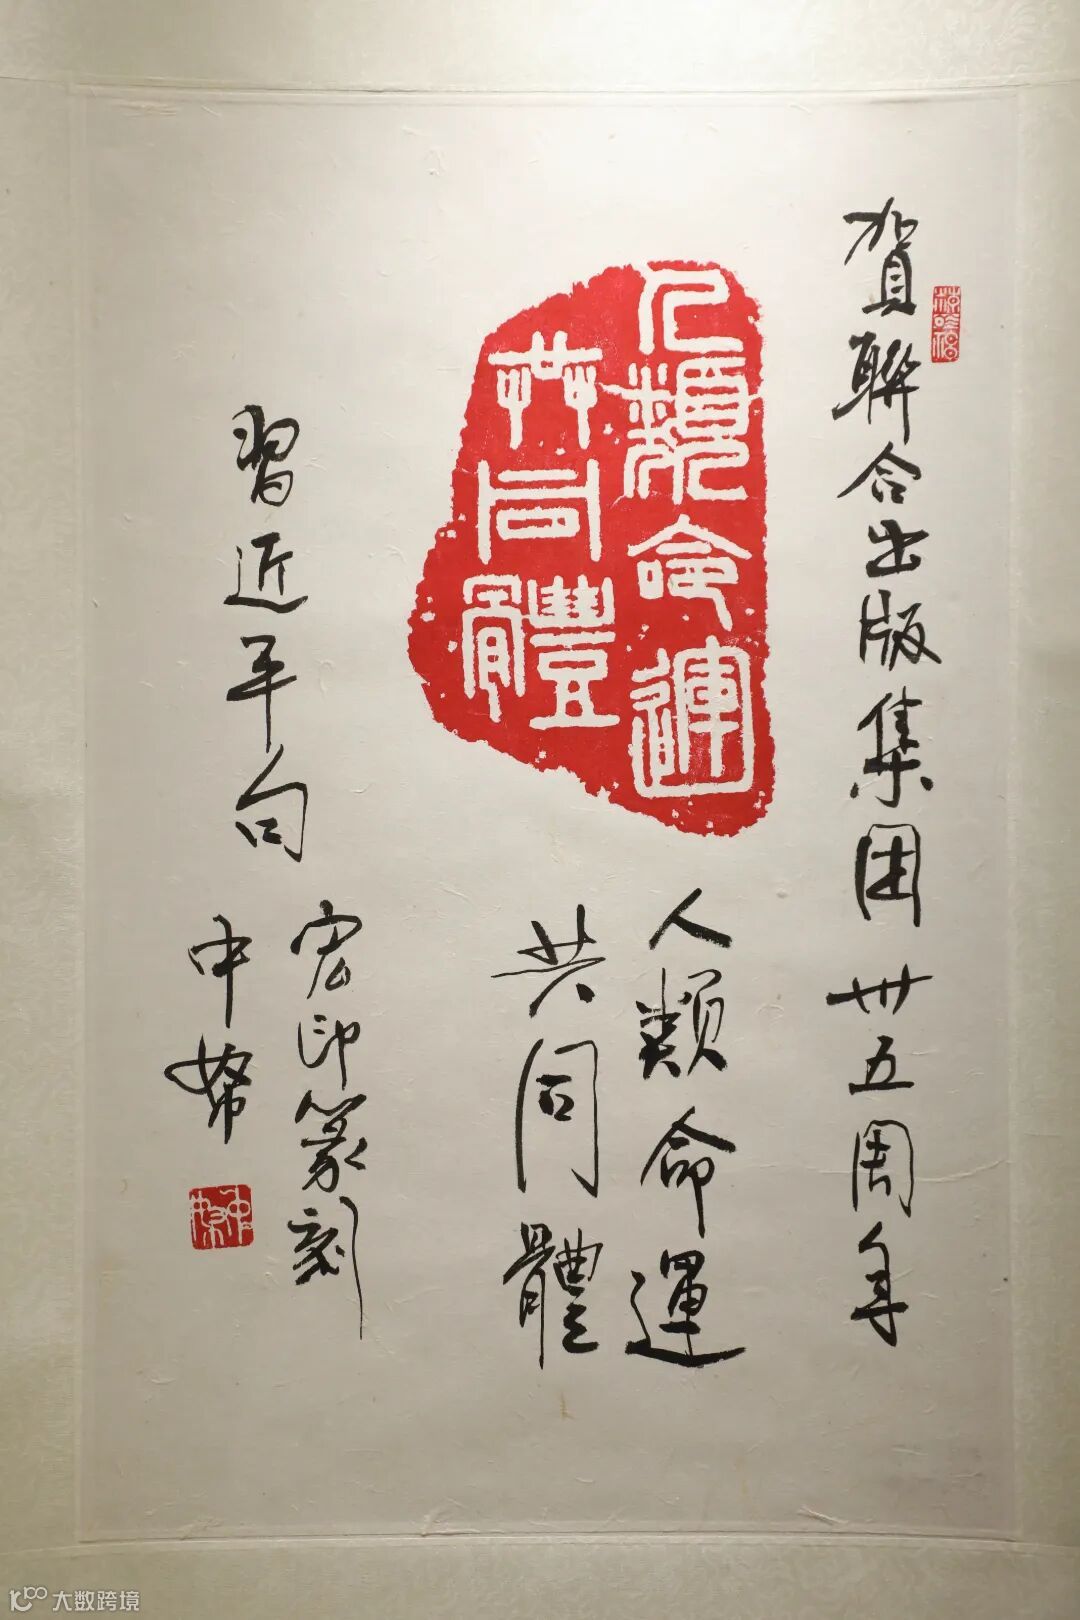 賀聯合出版集团卅五周年
人類命運
共同體
人類命運
共同體
習近平句
宏印篆刻
中
大数跨境